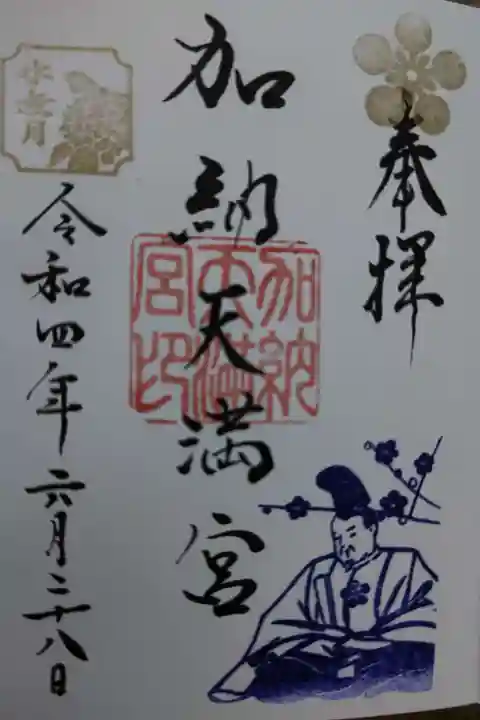 奉拝
加納天満宮
加納天満宮印
水無月
令和四年六月二十八日